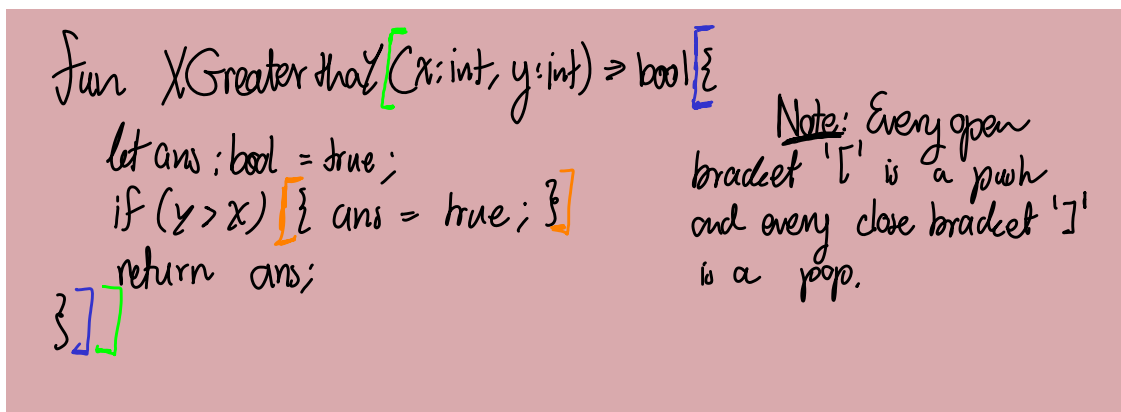 fun XGreaterthaY[(x:int, y:int) => bool[{
let ans : bool = true;
if (y > x) [{ ans = true; }]
return ans;
}]]
Note: Every open
bracket '[' is a push
and every close bracket ']'
is a pop.